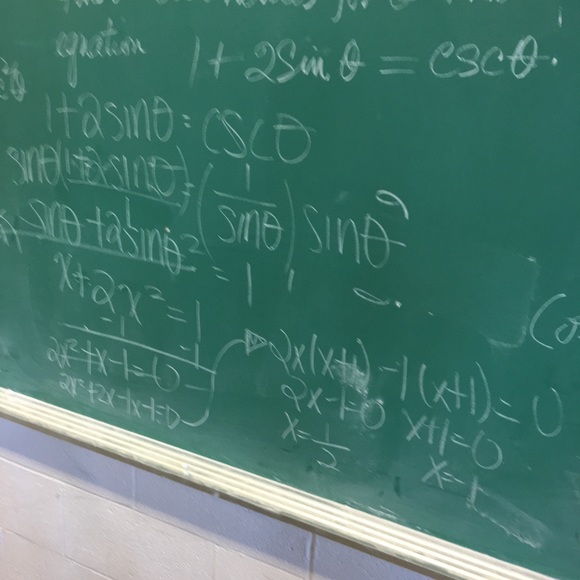 equation 1 + 2 sin θ = csc θ.
1 + 2 sin θ = csc θ
sin θ (1 + 2 sin θ) = (1/sin θ) sin θ
sin θ + 2 sin θ² = 1
x + 2x² = 1
-1 -1
2x² + x - 1 = 0
2x² + 2x - 1x - 1 = 0
2x(x+1) - 1(x+1) = 0
2x - 1 = 0 x + 1 = 0
x = 1/2 x = -1